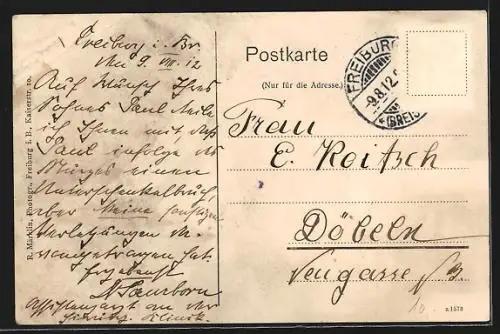 Freiburg i. Br.
den 9. VIII. 12
Auf Wunsch Ihres
Sohnes Paul teile
ich Ihnen mit, daß
Paul infolge des
Sturzes einen
Unterschenkelbruch,
aber keine sonstigen
Verletzungen
davongetragen hat.
Ergebenst
Assistenzarzt an der
chirurg. Klinik.
R. Märklin, Photogr., Freiburg i. B., Kaiserstr. 10.
Postkarte
(Nur für die Adresse.)
FREIBURG
9.8.12.
*(BREIS
Frau
E. Roitzsch
Döbeln
Neugasse
n 1578